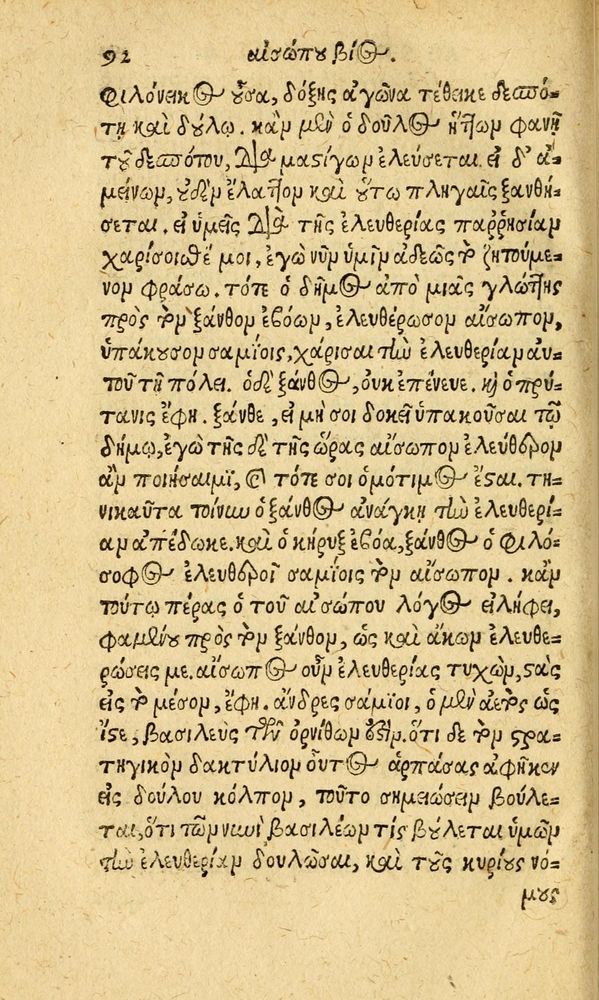 92 αἰσώπου βίος.
φιλόνεικος οὖσα, δόξης ἀγῶνα τέθεικε δεσπό-
τῃ καὶ δούλῳ. κἂν μὲν ὁ δοῦλος ἥττων φανῇ
τοῦ δεσπότου, διὰ μαστίγων ἐλεύσεται. εἰ δ' ἀ-
μείνων, οὐδὲν ἔλαττον καὶ οὕτω πληγαῖς ξανθή-
σεται. εἰ ὑμεῖς διὰ τῆς ἐλευθερίας παρρησίαν
χαρίσοισθέ μοι, ἐγὼ νῦν ὑμῖν ἀδεῶς τὸ ζητούμε-
νον φράσω. τότε ὁ δῆμος ἀπὸ μιᾶς γλώττης
πρὸς τὸν ξάνθον ἐβόων, ἐλευθέρωσον αἴσωπον,
ὑπάκουσον σαμίοις, χάρισαι τὴν ἐλευθερίαν αὐ-
τοῦ τῇ πόλει. ὁ δὲ ξάνθος, οὐκ ἐπένευε. καὶ ὁ πρύ-
τανις ἔφη. ξάνθε, εἰ μή σοι δοκεῖ ὑπακοῦσαι τῷ
δήμῳ, ἐγὼ τῆς δὲ τῆς ὥρας αἴσωπον ἐλεύθερον
ἂν ποιήσαιμι, καὶ τότε σοι ὁμότιμος ἔσται. τη-
νικαῦτα τοίνυν ὁ ξάνθος ἀνάγκῃ τὴν ἐλευθερί-
αν ἀπέδωκε. καὶ ὁ κήρυξ ἐβόα, ξάνθος ὁ φιλό-
σοφος ἐλευθεροῖ σαμίοις τὸν αἴσωπον. κἂν
τούτῳ πέρας ὁ τοῦ αἰσώπου λόγος εἰλήφει,
φαμένου πρὸς τὸν ξάνθον, ὡς καὶ ἄκων ἐλευθε-
ρώσεις με. αἴσωπος οὖν ἐλευθερίας τυχὼν, στὰς
εἰς τὸ μέσον, ἔφη. ἄνδρες σάμιοι, ὁ μὲν ἀετὸς ὡς
ἴστε, βασιλεὺς τῶν ὀρνίθων ἐστίν. ὅτι δὲ τὸν στρα-
τηγικὸν δακτύλιον οὗτος ἁρπάσας ἀφῆκεν
εἰς δούλου κόλπον, τοῦτο σημειώσειν βούλε-
ται, ὅτι τῶν νυνὶ βασιλέων τὶς βούλεται ὑμῶν
τὴν ἐλευθερίαν δουλῶσαι, καὶ τοὺς κυρίους νό-
μους